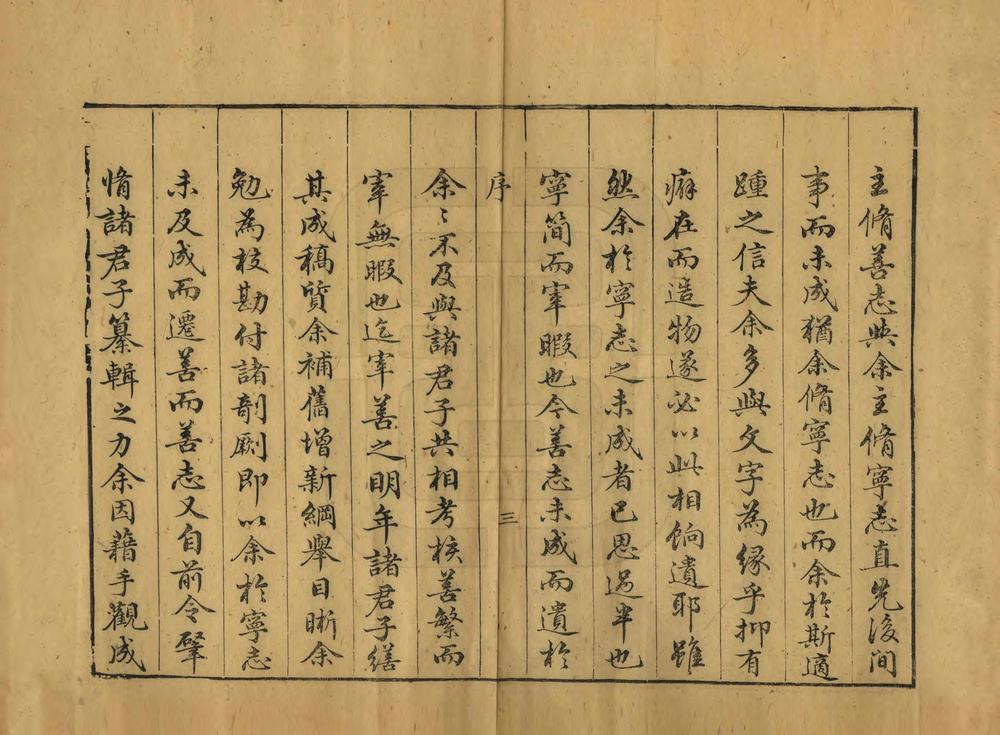 主脩善志與余主脩寧志直先後間
事而未成猶余脩寧志也而余於斯適
踵之信夫余多與文字為緣乎抑有
癖在而造物遂必以此相餉遺耶雖
然余於寧志之未成者已思過半也
寧簡而宰暇也今善志未成而遺於
序
三
余余不及與諸君子共相考核善繁而
宰無暇也迄宰善之明年諸君子繕
其成稿質余補舊增新綱舉目晰余
勉為校勘付諸剞劂即以余於寧志
未及成而遷善而善志又自前令肇
脩諸君子纂輯之力余因藉手觀成